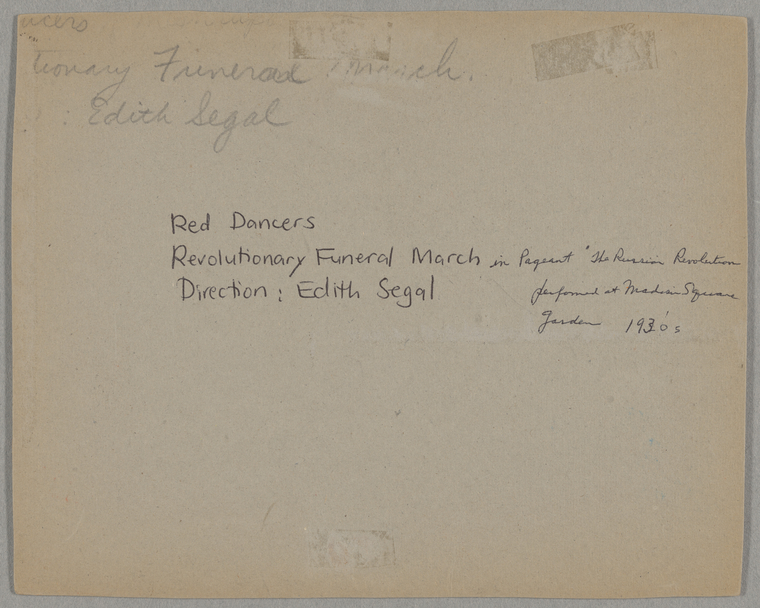 ncers
tionary Funeral March.
: Edith Segal
Red Dancers
Revolutionary Funeral March in Pageant "The Russian Revolution
Direction : Edith Segal performed at Madison Square
Garden 1930's